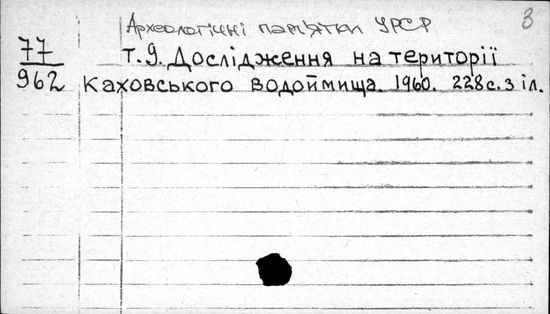 Археологічні пам'ятки УРСР
3
77
Т. 9. Дослідження на території
962 Каховського водоймища. 1960. 228 с. з іл.